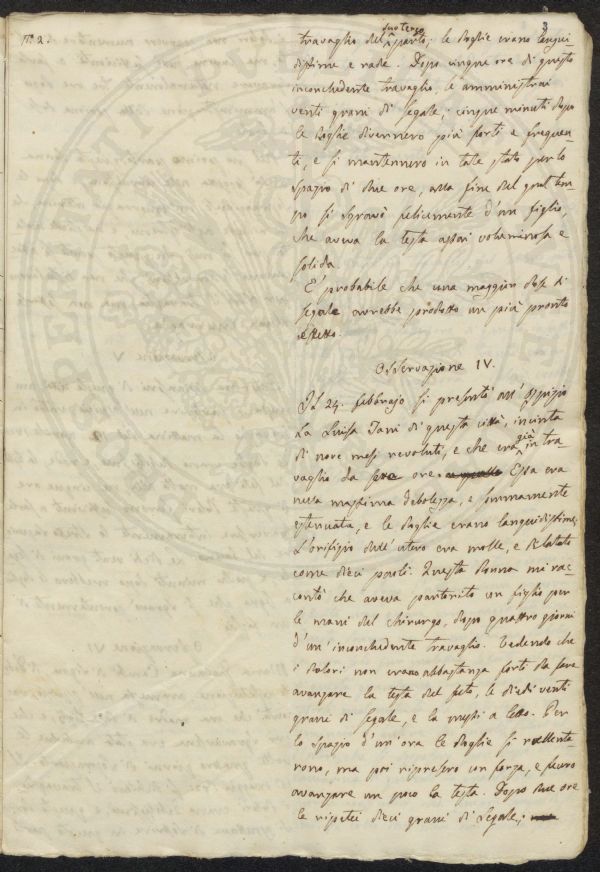 N.o 2.
3
travaglio del suo terzo parto; le doglie erano langui-
dissime e rade. Dopo cinque ore di questo
inconcludente travaglio, le amministrai
venti grani di segale; cinque minuti dopo
le doglie divennero più forti e frequen-
ti, e si mantennero in tale stato per lo
spazio di due ore, alla fine del qual tem-
po si sgravò felicemente d'un figlio,
che aveva la testa assai voluminosa e
solida.
E' probabile che una maggior dose di
segale avrebbe prodotto un più pronto
effetto.
Osservazione IV.
Il 24. febbrajo si presentò all' Ospizio
la Luisa Tani di questa città, incinta
di nove mesi revoluti, e che era già in tra-
vaglio da ore. Essa era
nella massima debolezza, e sommamente
estenuata, e le doglie erano languidissime.
L'orifizio dell' utero era molle, e dilatato
come dieci paoli. Questa donna mi rac-
contò che aveva partorito un figlio per
le mani del chirurgo, dopo quattro giorni
d'un' inconcludente travaglio. Vedendo che
i dolori non erano abbastanza forti da fare
avanzare la testa del feto, le diedi venti
grani di segale, e la messi a letto. Per
lo spazio d'un' ora le doglie si rallenta-
rono, ma poi ripresero con forza, e fecero
avanzare un poco la testa. Dopo due ore
le ripetei dieci grani di segale;